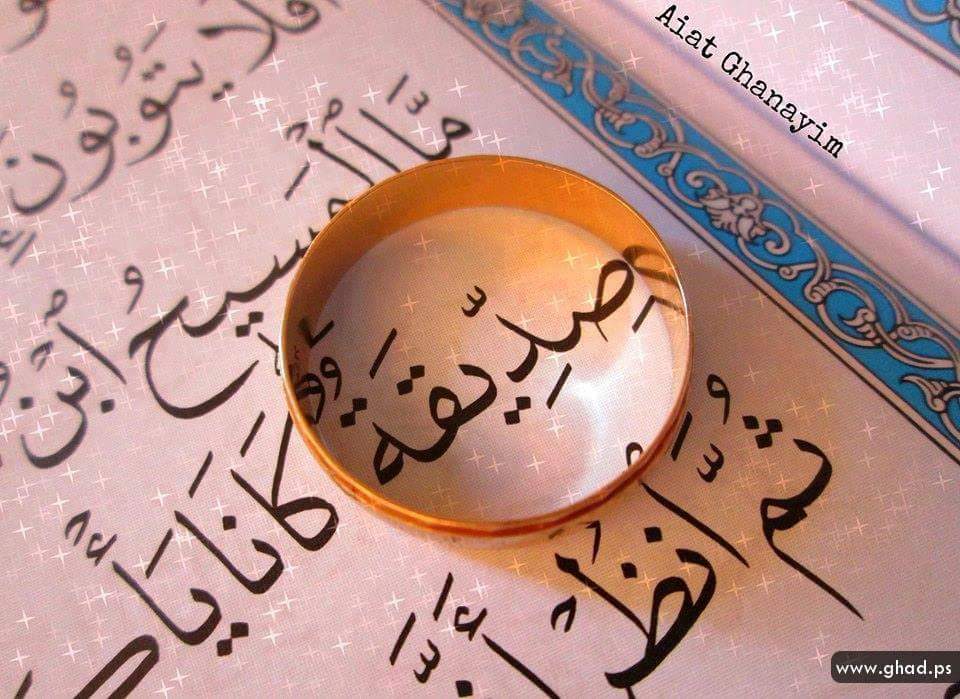 Aiat Ghanayim
أَفَلَا يَتُوبُونَ
مَّا ٱلْمَسِيحُ ٱبْنُ
صِدِّيقَةٌ كَانَا يَأْكُ
ثُمَّ ٱنظُرْ أَنَّ
www.ghad.ps